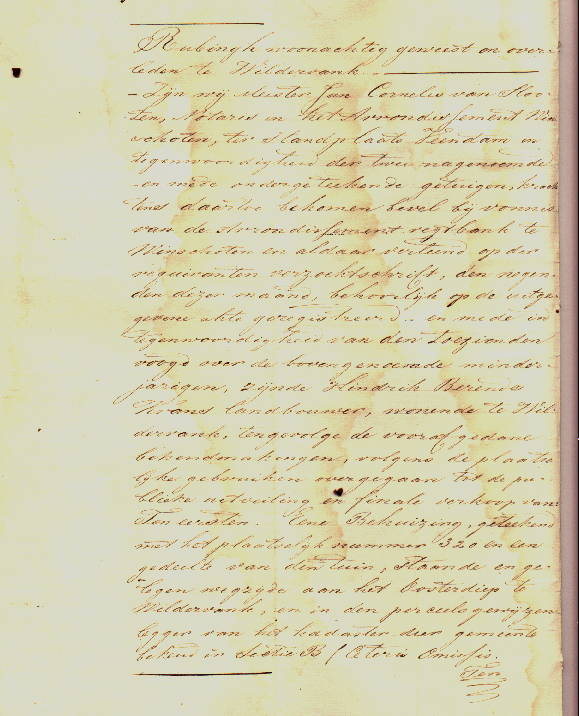 Rubingh woonachtig geweest en over-
leden te Wildervank
- Zijn wij Meester Jan Cornelis van Sloo-
ten, Notaris in het Arrondissement Win
schoten, ter standplaats Veendam in
tegenwoordigheid der twee nagenoemde
en mede ondergeteekende getuigen, krach
tens daartoe bekomen bevel bij vonnis
van de Arrondissement regtbank te
Winschoten en aldaar verleend op der
requiranten verzoekschrift, den negen-
den dezer maand, behoorlijk op de uitge
gevene akte geregistreerd - en mede in
tegenwoordigheid van den toezienden
voogd over de bovengenoemde minder-
jarigen, zijnde Hindrik Berends
Krans landbouwer, wonende te Wil-
dervank, tengevolge de vooraf gedane
bekendmakingen, volgens de plaatse
lijke gebruiken overgegaan tot de pu-
blieke uitveiling en finale verkoop van
Ten eersten. Eene Behuizing, geteekend
met het plaatselijk nummer 320 en een
gedeelte van den tuin, staande en ge-
legen wegzijde aan het Oosterdiep te
Wildervank, en in den perceelsgewijzen
legger van het kadaster dier gemeente
bekend in Sectie B / Ceteris Omissis.
Ten